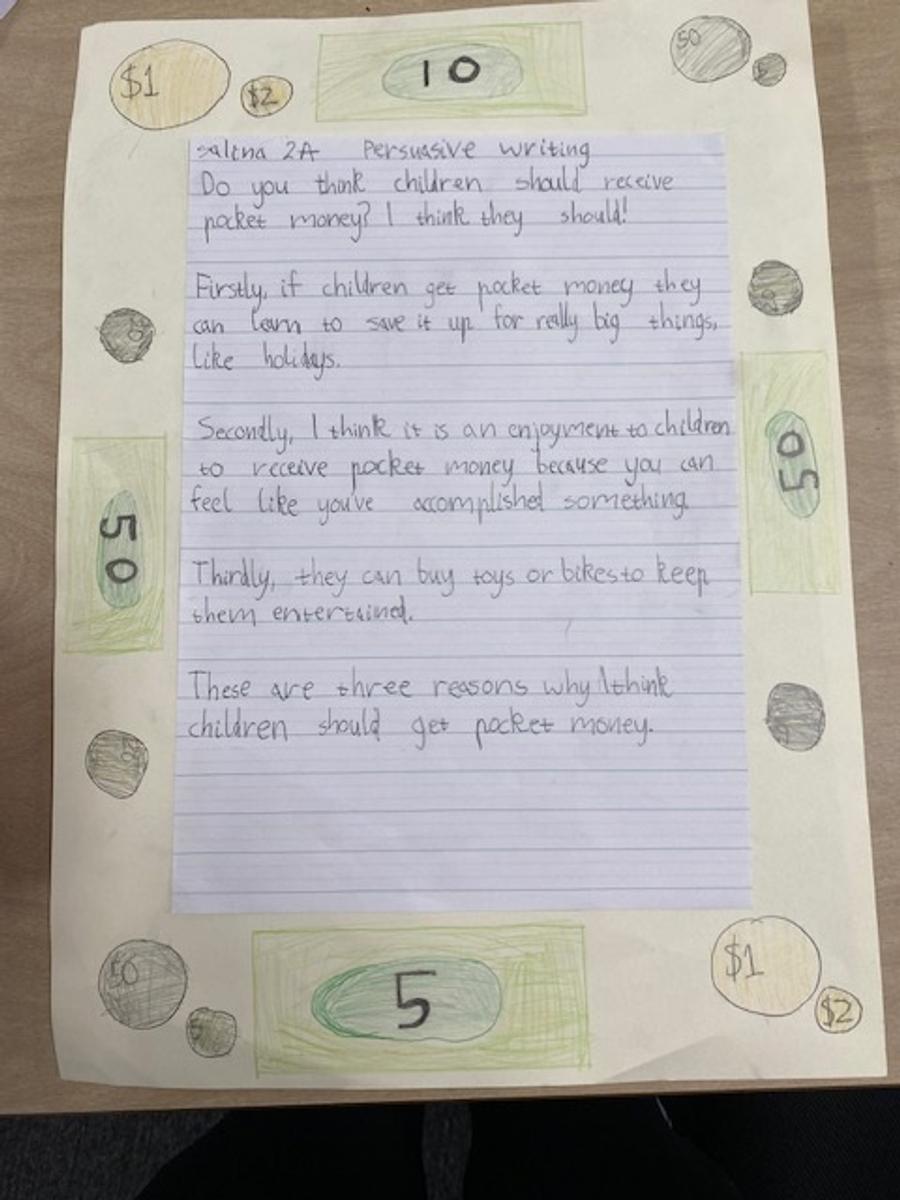 $1
$2
10
50
5
Salena 2A Persuasive writing
Do you think children should receive
pocket money? I think they should!
Firstly, if children get pocket money they
can learn to save it up for really big things,
like holidays.
Secondly, I think it is an enjoyment to children
to receive pocket money because you can
feel like you've accomplished something.
Thirdly, they can buy toys or bikes to keep
them entertained.
These are three reasons why I think
children should get pocket money.
50
50
50
5
$1
$2